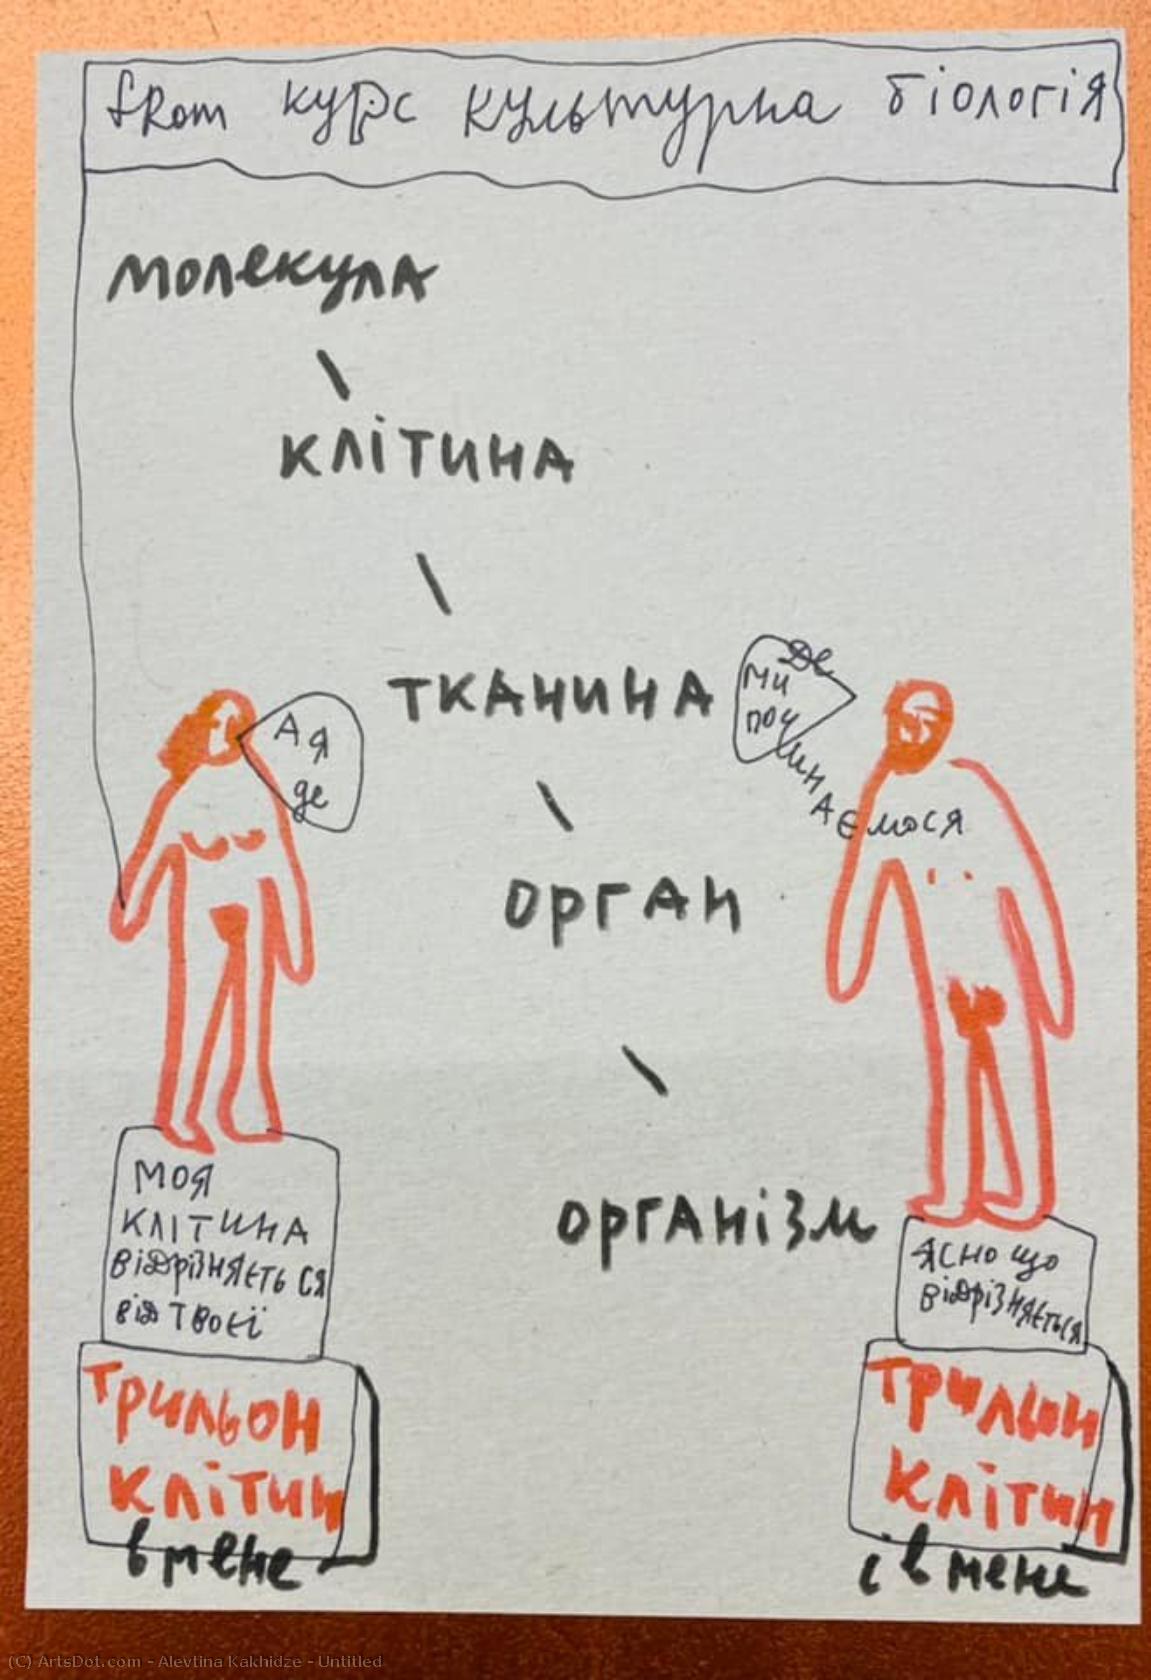 from курс культурна біологія
молекула
клітина
тканина
орган
організм
А я
де
Де
ми
починаємося
моя
клітина
відрізняється
від твоєї
трильон
клітин
в мене
ясно що
відрізняється
трильон
клітин
і в мене
(C) ArtsDot.com - Alevtina Kakhidze - Untitled